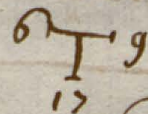 6 9
17